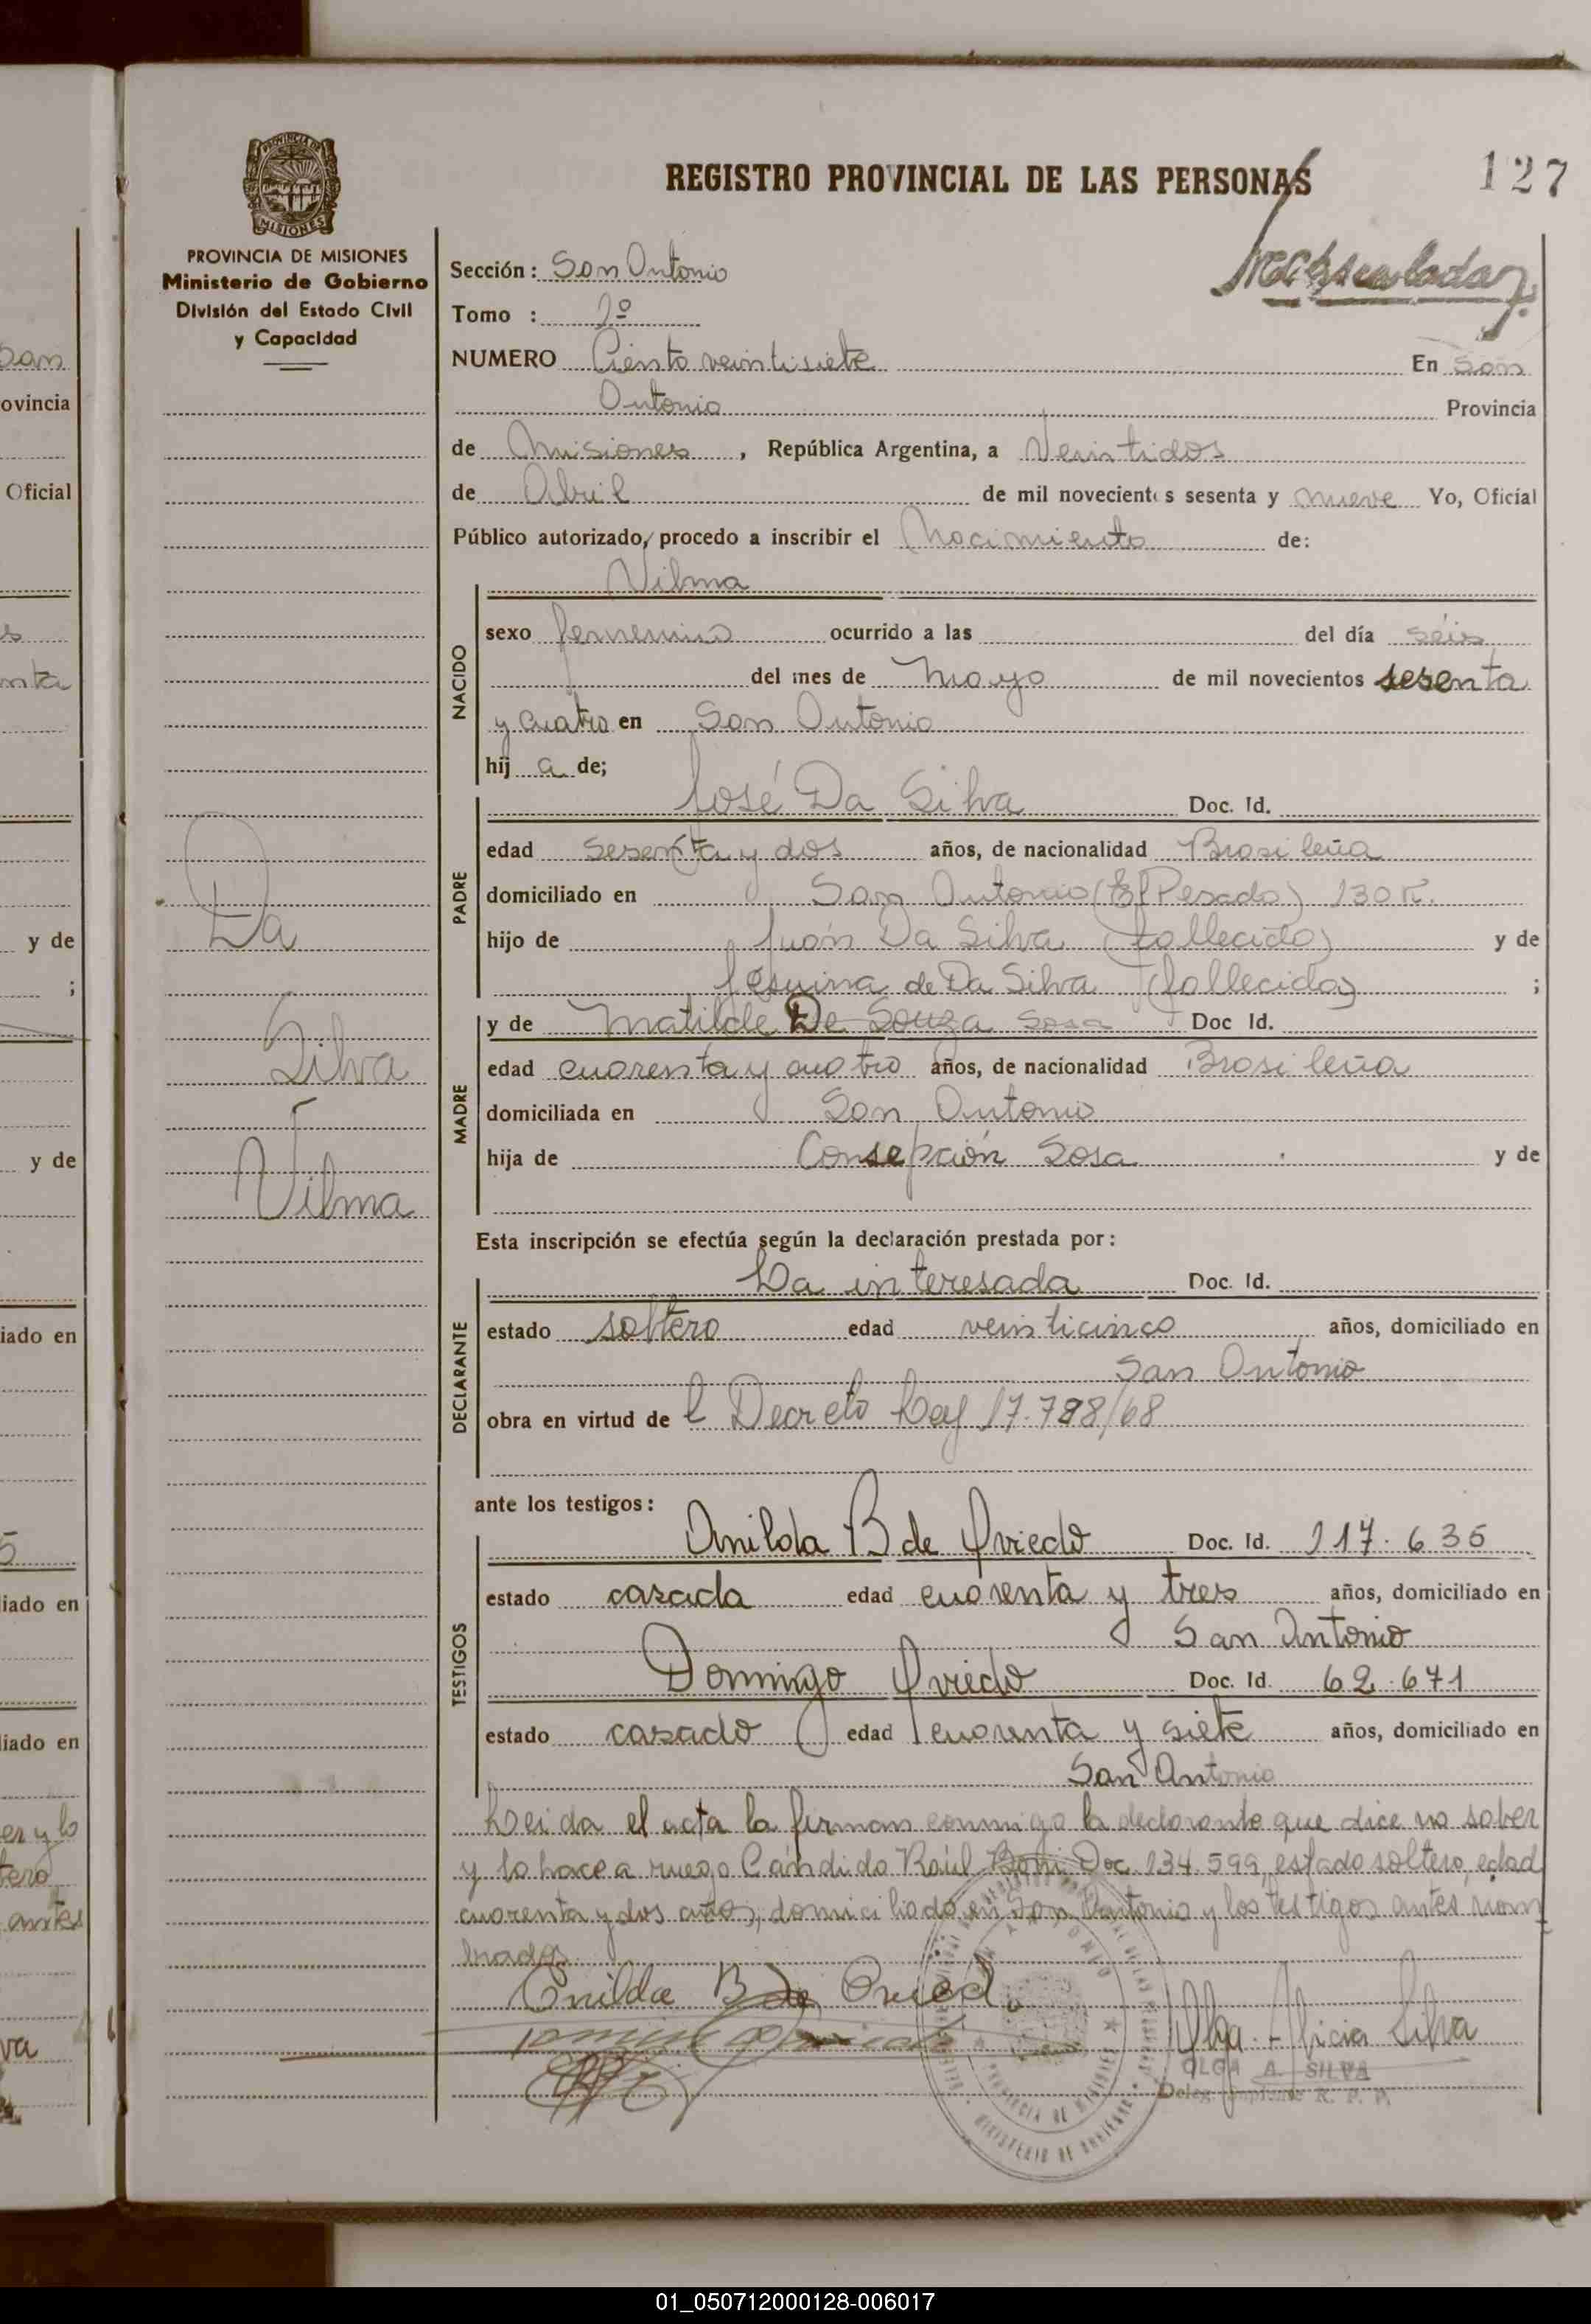 127
REGISTRO PROVINCIAL DE LAS PERSONAS
PROVINCIA DE MISIONES
Ministerio de Gobierno
División del Estado Civil
y Capacidad
Sección: San Antonio
Tomo : 1º
NUMERO Ciento veintisiete En San
Antonio Provincia
de Misiones, República Argentina, a Veintidos
de Abril de mil novecientos sesenta y nueve Yo, Oficial
Público autorizado, procedo a inscribir el Nacimiento de:
Vilma
NACIDO
sexo femenino ocurrido a las del día seis
del mes de Mayo de mil novecientos sesenta
y cuatro en San Antonio
hija de;
José Da Silva Doc. Id.
PADRE
edad sesenta y dos años, de nacionalidad Brasileña
domiciliado en San Antonio (El Pesado) 130 K.
hijo de Juán Da Silva (fallecido) y de
de Da Silva (fallecida) ;
y de Matilde De Souza Sosa Doc Id.
MADRE
edad cuarenta y cuatro años, de nacionalidad Brasileña
domiciliada en San Antonio
hija de Consepción Sosa y de
Da
Silva
Vilma
Esta inscripción se efectúa según la declaración prestada por:
La interesada Doc. Id.
DECLARANTE
estado soltero edad veinticinco años, domiciliado en
San Antonio
obra en virtud de l Decreto Ley 17.788/68
ante los testigos:
TESTIGOS
B de Oviedo Doc. Id. 117.635
estado casada edad cuarenta y tres años, domiciliado en
San Antonio
Domingo Oviedo Doc. Id. 62.671
estado casado edad cuarenta y siete años, domiciliado en
San Antonio
Leida el acta la firman conmigo la declarante que dice no saber
y lo hace a ruego Cándido Raúl Doc. 134.599, estado soltero, edad
cuarenta y dos años, domiciliado en San Antonio y los testigos antes nom
brados
Enilda B de Oviedo
Olga Alicia Silva
OLGA A. SILVA
R. P. P.
PROVINCIA DE MISIONES
MINISTERIO DE GOBIERNO
San
ovincia
Oficial
nta
y de
;
y de
iado en
5
iado en
iado en
er y lo
tero
antes
va
01_050712000128-006017